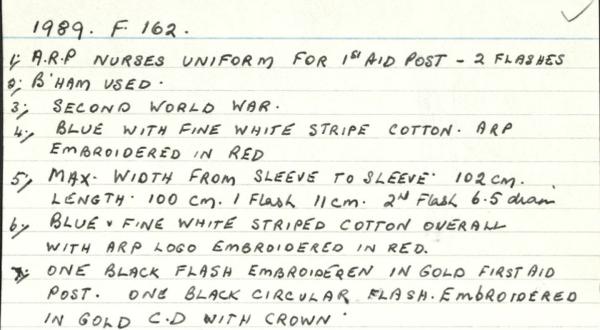 1989. F 162.
1; A.R.P NURSES UNIFORM FOR 1ST AID POST - 2 FLASHES
2; B'HAM USED.
3; SECOND WORLD WAR.
4; BLUE WITH FINE WHITE STRIPE COTTON. ARP
EMBROIDERED IN RED
5; MAX. WIDTH FROM SLEEVE TO SLEEVE. 102 cm.
LENGTH. 100 cm. 1 Flash 11 cm. 2nd Flash 6.5 diam
6; BLUE & FINE WHITE STRIPED COTTON OVERALL
WITH ARP LOGO EMBROIDERED IN RED.
7; ONE BLACK FLASH EMBROIDEREN IN GOLD FIRST AID
POST. ONE BLACK CIRCULAR FLASH. EMBROIDERED
IN GOLD C.D WITH CROWN.